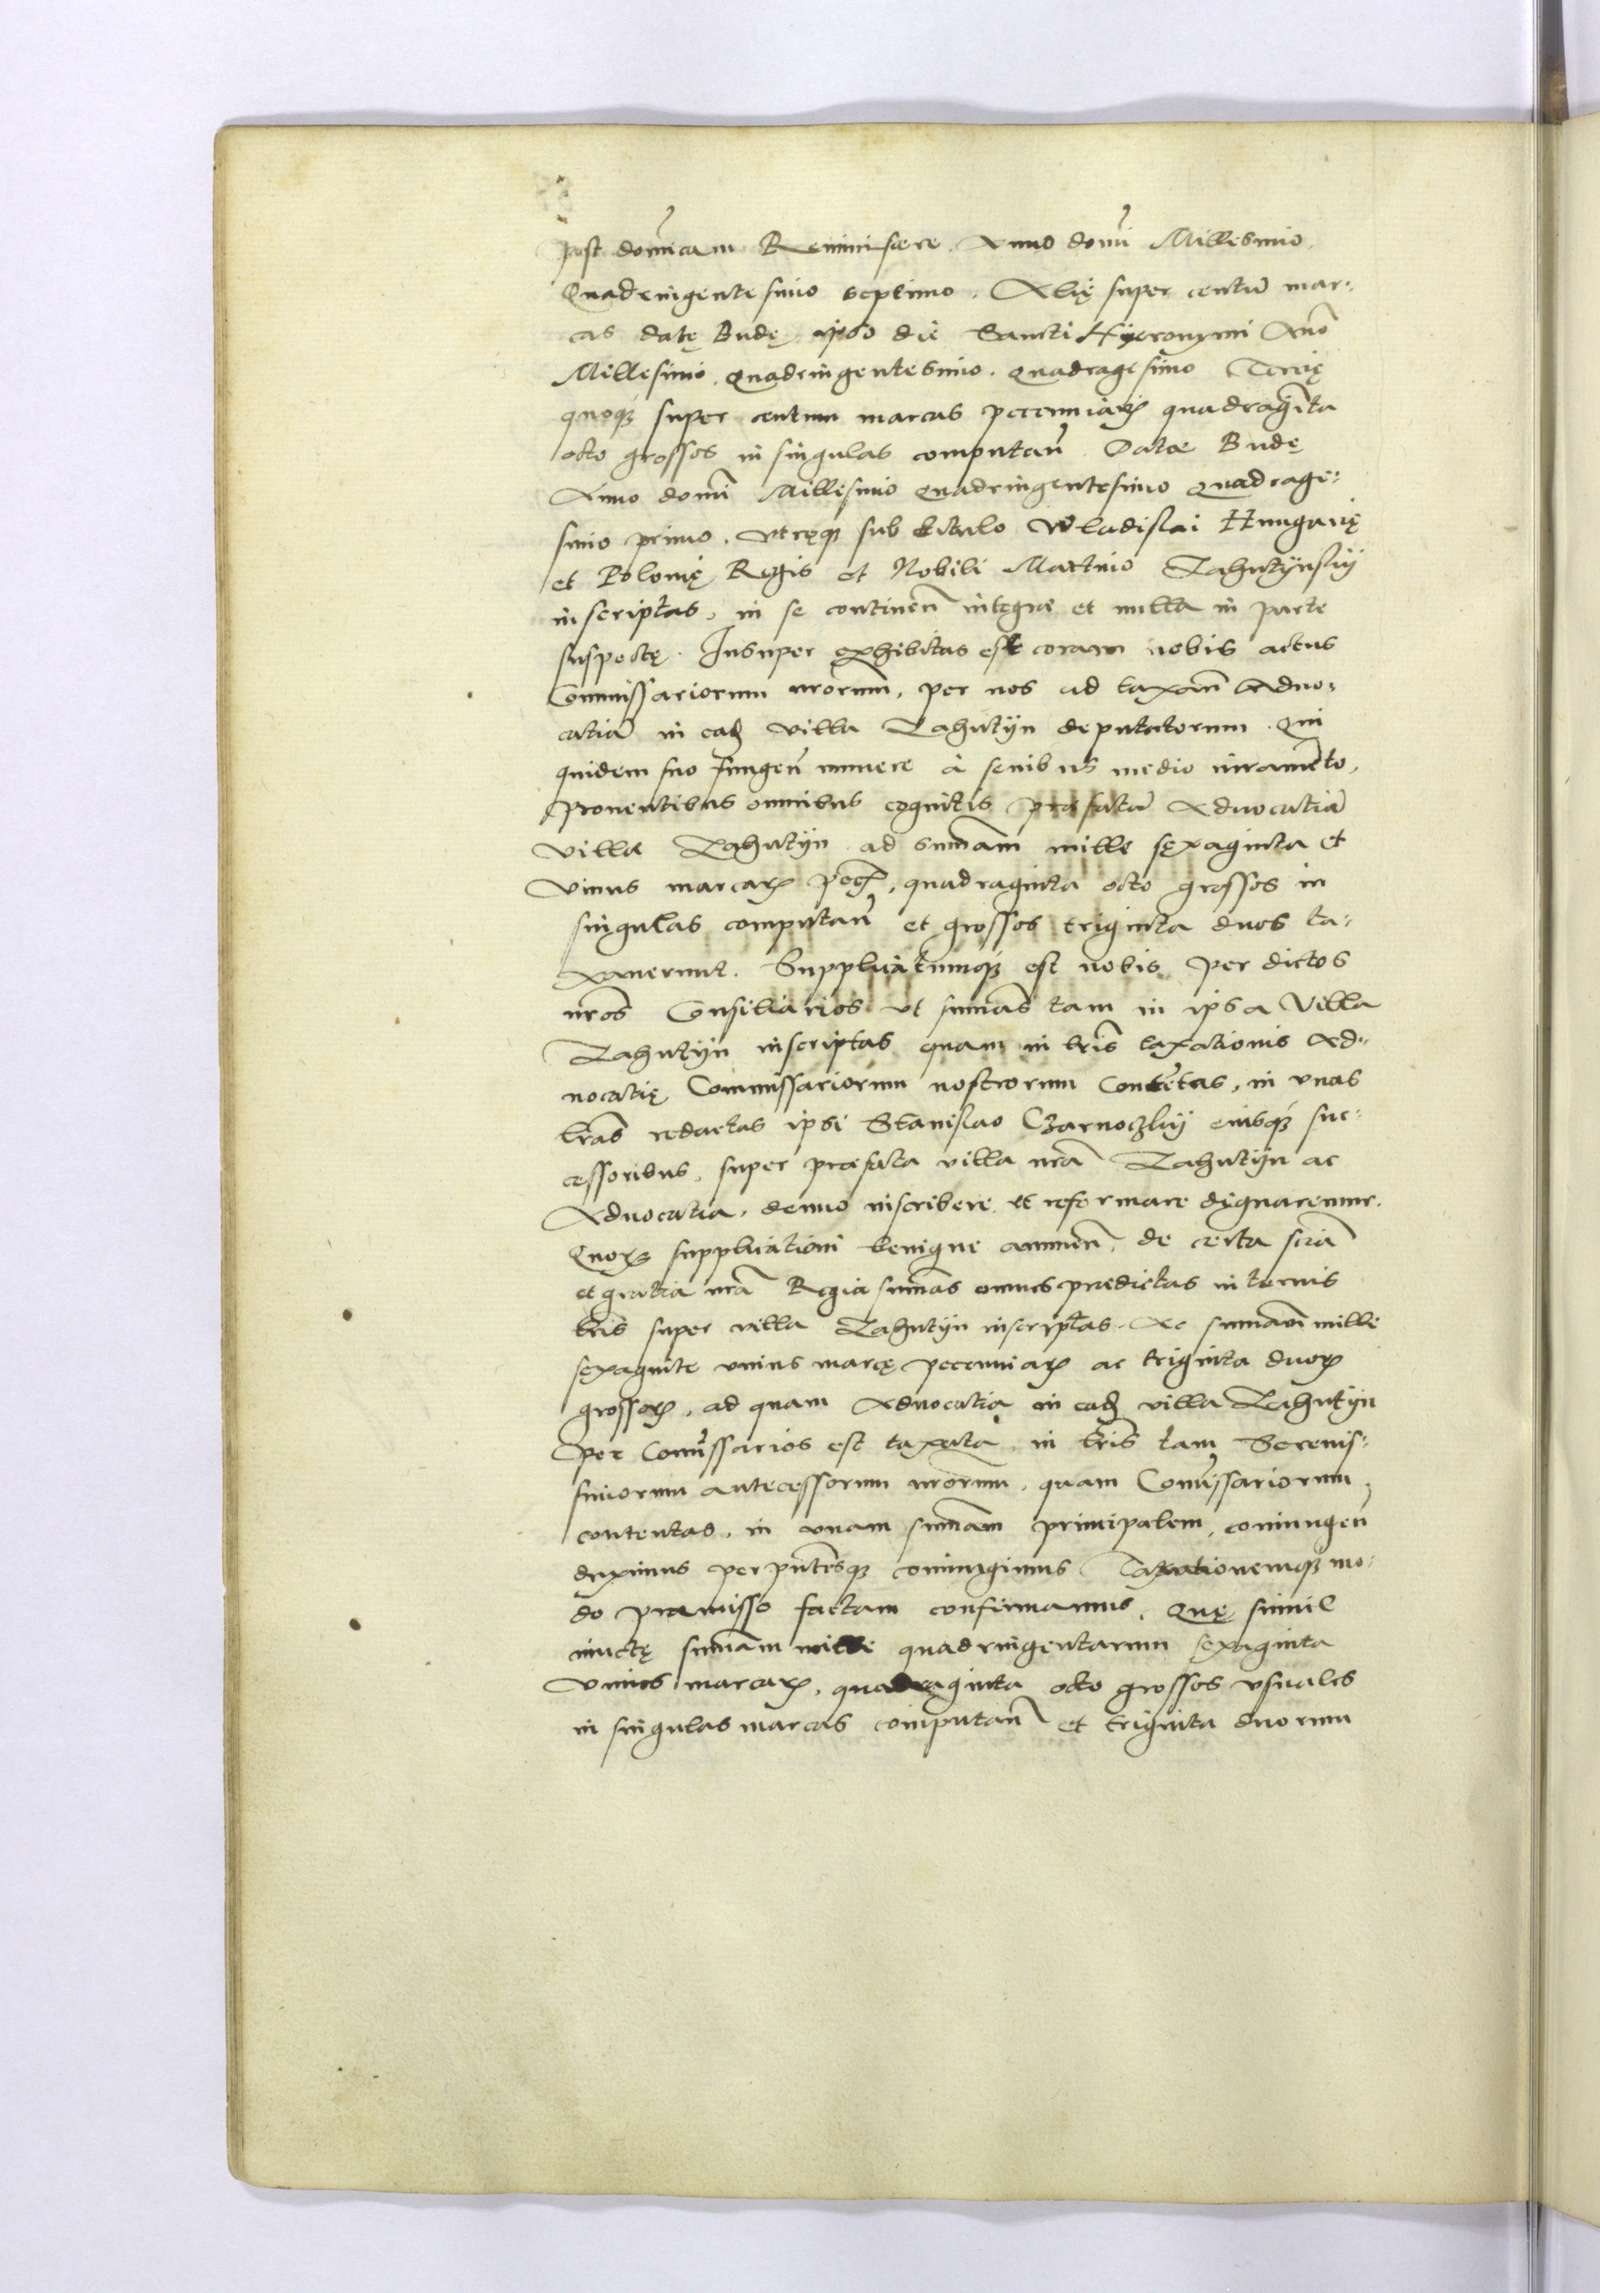 post domĩcam Reminiscere Anno domĩ Millesimo
Quadringentesimo septimo. Alię super centũ mar-
cas datę Budę ipso die Sancti Hyeronymi Anõ
Millesimo quadringentesimo quadragesimo Tercię
quoqȝ super centum marcas pecuniaꝝ quadragĩta
octo grossos in singulas computañ Datae Budę
Anno domĩ Millesimo quadringentesimo Quadrage-
simo primo, utręqȝ sub titulo Wladislai Hungarię
et Polonię Regis et Nobili Martino Zahutÿnskÿ
inscriptas, in se continen̄ integrę et nulla in parte
suspectę. Insuper exhibitas est coram nobis actus
Commissariorum nrorum, per nos ad taxañ Aduo-
catiã in eadȝ villa Zahutÿn deputatorum. Qui
quidem suo fungen̄ munere à senibus medio iuramẽto,
prouentibus omnibus cognitis praefatã Aduocatiã
villae Zahutÿn ad sum̃am mille sexaginta et
vnius marcaꝝ pecũ, quadraginta octo grossos in
singulas computañ et grossos triginta duos ta-
xauerunt. Supplicatumqȝ est nobis per dictos
nrõs Consiliarios ut sum̃as tam in ipsa Villa
Zahutÿn inscriptas quam in lrĩs taxationis Ad-
uocatię Commissariorum nostrorum contẽtas, in vnas
lrãs redactas ipsi Stanislao Czarnoczkÿ eiusqȝ suc-
cessoribus, super praefata villa nrã Zahutÿn ac
Aduocatia, denuo inscribere et reformare dignaremur.
Quoꝝ supplicationi benigne annuen̄, de certa sciã
et gratia nrã Regia sum̃as omnes praedictas in ternis
lrĩs super villa Zahutÿn inscriptas. Ac sum̃am mille
sexaginta vnius marcę pecuniaꝝ ac triginta duoꝝ
grossoꝝ, ad quam Aduocatia in eadȝ villa Zahutÿn
per Com̃issarios est taxata, in lrĩs tam Serenis-
simorum antecessorum nrorum, quam Com̃issariorum
contentas, in vnam sum̃am principalem, coniungen̄
duximus perpñtesqȝ coniungimus Taxationemqȝ mo-
do praemisso factam confirmamus. Quę simul
iunctę sum̃am mille quadringentarum sexaginta
vnius marcaꝝ, quadraginta octo grossos vsuales
in singulas marcas computañ et triginta duorum